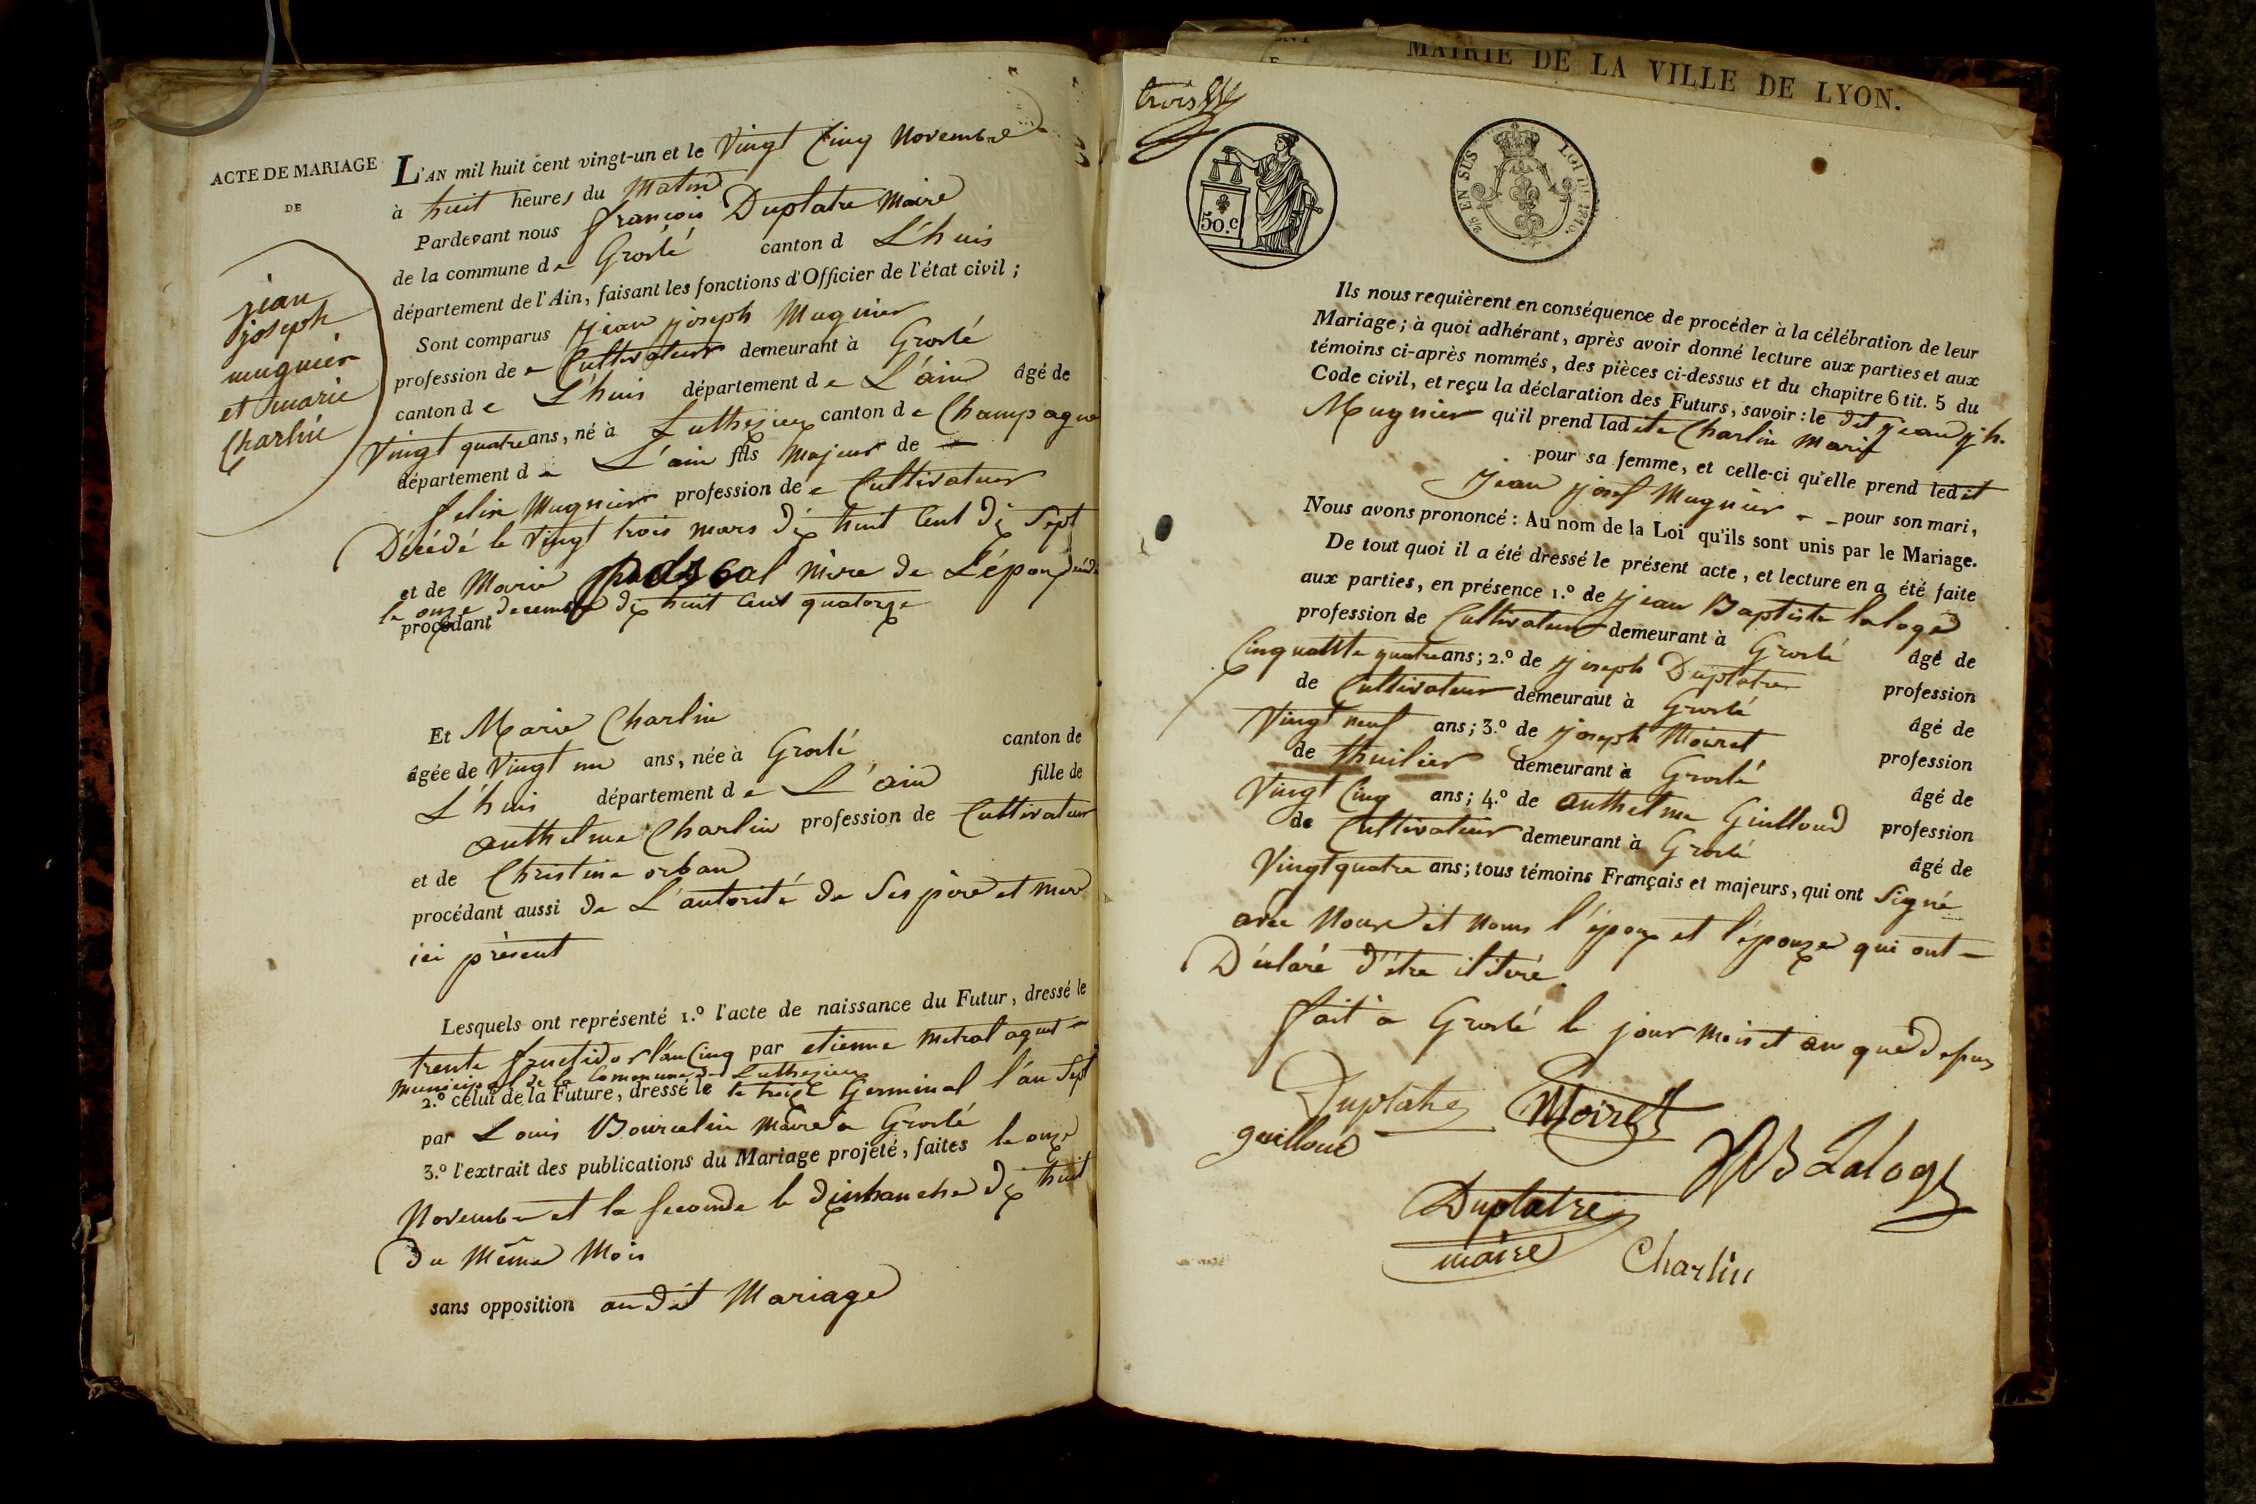 ACTE DE MARIAGE
DE
jean
joseph
mugnier
et marie
Charlin
L'AN mil huit cent vingt-un et le Vingt Cinq Novembre
à huit heures du Matin
Pardevant nous françois Duplatre Maire
de la commune de Groslé canton d L'huis
département de l'Ain, faisant les fonctions d'Officier de l'état civil ;
Sont comparus jean joseph Mugnier
profession de Cultivateur demeurant à Groslé
canton de L'huis département de L'ain âgé de
Vingt quatre ans, né à Luthezieu canton de Champagne
département de L'ain fils Majeur de
felix Mugnier profession de Cultivateur
Décédé le Vingt trois mars dix huit Cent dix Sept
et de Marie pascal mère de L'époux
le onze decembre dix huit Cent quatorze
procédant
Et Marie Charlin
âgée de Vingt un ans, née à Groslé canton de
L'huis département de L'ain fille de
anthelme Charlin profession de Cultivateur
et de Christine orban
procédant aussi de L'autorité de Ses père et mere
ici présent
Lesquels ont représenté 1.º l'acte de naissance du Futur, dressé le
trente fructidor l'an Cinq par etienne Metral agent
Municipal de la Commune de Luthezieu
2.º celui de la Future, dressé le le treize Germinal l'an Sept
par Louis Bourcelin Maire a Groslé
3.º l'extrait des publications du Mariage projeté, faites le onze
Novembre et la Seconde le dimhanche dix huit
du Même Mois
sans opposition au dit Mariage
MAIRIE DE LA VILLE DE LYON.
trois
50.c
EN SUS
LOI DE 1816.
Ils nous requièrent en conséquence de procéder à la célébration de leur
Mariage ; à quoi adhérant, après avoir donné lecture aux parties et aux
témoins ci-après nommés, des pièces ci-dessus et du chapitre 6 tit. 5 du
Code civil, et reçu la déclaration des Futurs, savoir : le dit jean jh.
Mugnier qu'il prend ladite Charlin Marie
pour sa femme, et celle-ci qu'elle prend ledit
jean josef Mugnier - - pour son mari,
Nous avons prononcé : Au nom de la Loi qu'ils sont unis par le Mariage.
De tout quoi il a été dressé le présent acte, et lecture en a été faite
aux parties, en présence 1.º de jean Baptiste laloge
profession de Cultivateur demeurant à Groslé âgé de
Cinquatte quatre ans ; 2.º de joseph Duplatre profession
de Cultivateur demeurant à Groslé âgé de
Vingt neuf ans ; 3.º de joseph Moiret profession
de thuilier demeurant à Groslé âgé de
Vingt Cinq ans ; 4.º de anthelme Guilloud profession
de Cultivateur demeurant à Groslé âgé de
Vingt quatre ans ; tous témoins Français et majeurs, qui ont Signé
avec Nous et Nom l'époux et l'épouze qui ont
Déclaré d'être iliteré
fait à Groslé le jour Mois et an que depuis
Duplatre Moiret
guilloud
JB Laloge
Duplatre
maire
Charlin